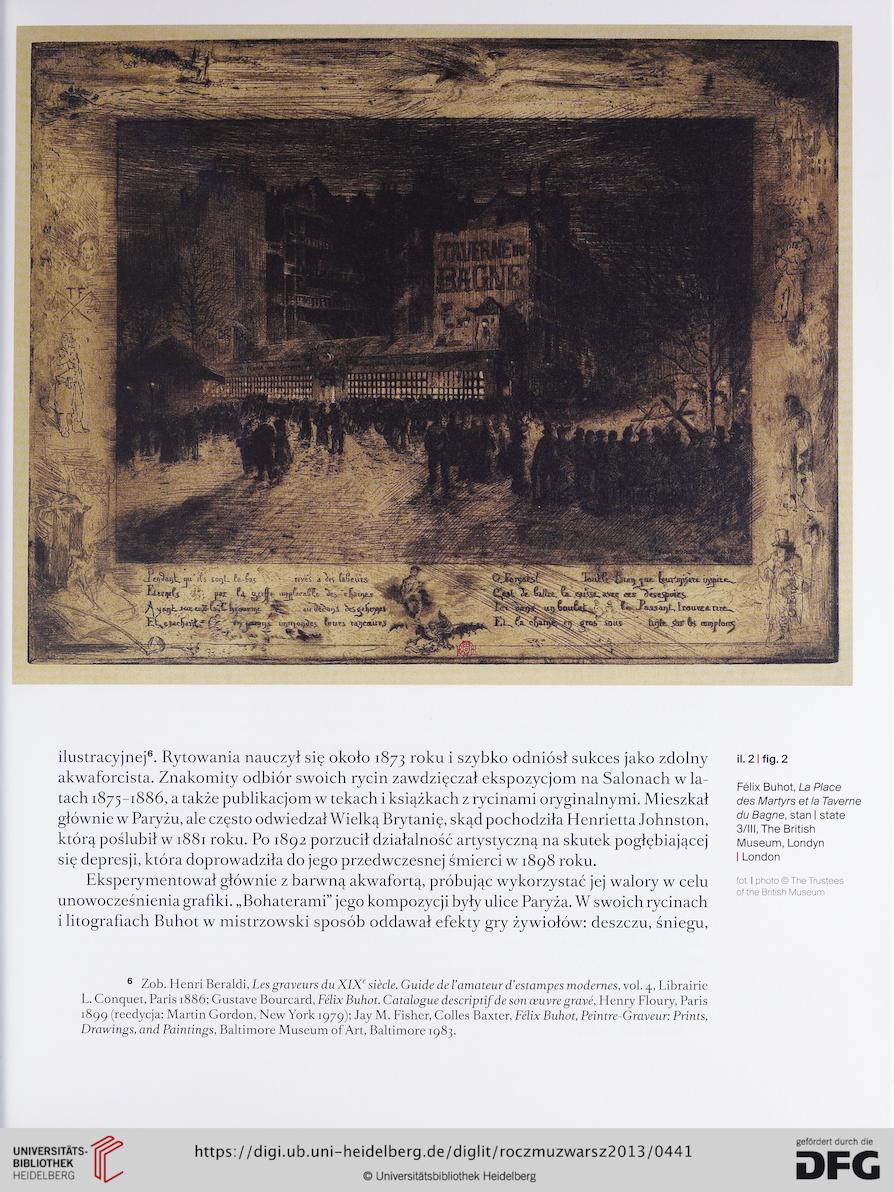 TAVERNE DU
BAGNE
TF
Pendant qu'ils sont la-bas rivés a des labeurs
Eternels par la griffe implacable des chaines
Ayant sur
Et crachant immondes leurs rancœurs
O Forçats! Bien que leur misere inspire
C'est de batire, la caisse avec ces desespoirs
un boulet le Passant, trouve a rire
Et la chaine en gros sous tinte sur les comptoirs
ilustracyjnej⁶. Rytowania nauczył się około 1873 roku i szybko odniósł sukces jako zdolny
akwaforcista. Znakomity odbiór swoich rycin zawdzięczał ekspozycjom na Salonach w la-
tach 1875–1886, a także publikacjom w tekach i książkach z rycinami oryginalnymi. Mieszkał
głównie w Paryżu, ale często odwiedzał Wielką Brytanię, skąd pochodziła Henrietta Johnston,
którą poślubił w 1881 roku. Po 1892 porzucił działalność artystyczną na skutek pogłębiającej
się depresji, która doprowadziła do jego przedwczesnej śmierci w 1898 roku.
Eksperymentował głównie z barwną akwafortą, próbując wykorzystać jej walory w celu
unowocześnienia grafiki. „Bohaterami” jego kompozycji były ulice Paryża. W swoich rycinach
i litografiach Buhot w mistrzowski sposób oddawał efekty gry żywiołów: deszczu, śniegu,
il. 2 | fig. 2
Félix Buhot, La Place
des Martyrs et la Taverne
du Bagne, stan | state
3/III, The British
Museum, Londyn
| London
fot. | photo © The Trustees
of the British Museum
⁶ Zob. Henri Beraldi, Les graveurs du XIXᵉ siècle. Guide de l'amateur d'estampes modernes, vol. 4, Librairie
L. Conquet, Paris 1886; Gustave Bourcard, Félix Buhot. Catalogue descriptif de son œuvre gravé, Henry Floury, Paris
1899 (reedycja: Martin Gordon, New York 1979); Jay M. Fisher, Colles Baxter, Félix Buhot, Peintre-Graveur: Prints,
Drawings, and Paintings, Baltimore Museum of Art, Baltimore 1983.
UNIVERSITÄTS-
BIBLIOTHEK
HEIDELBERG
https://digi.ub.uni-heidelberg.de/diglit/roczmuzwarsz2013/0441
© Universitätsbibliothek Heidelberg
gefördert durch die
DFG